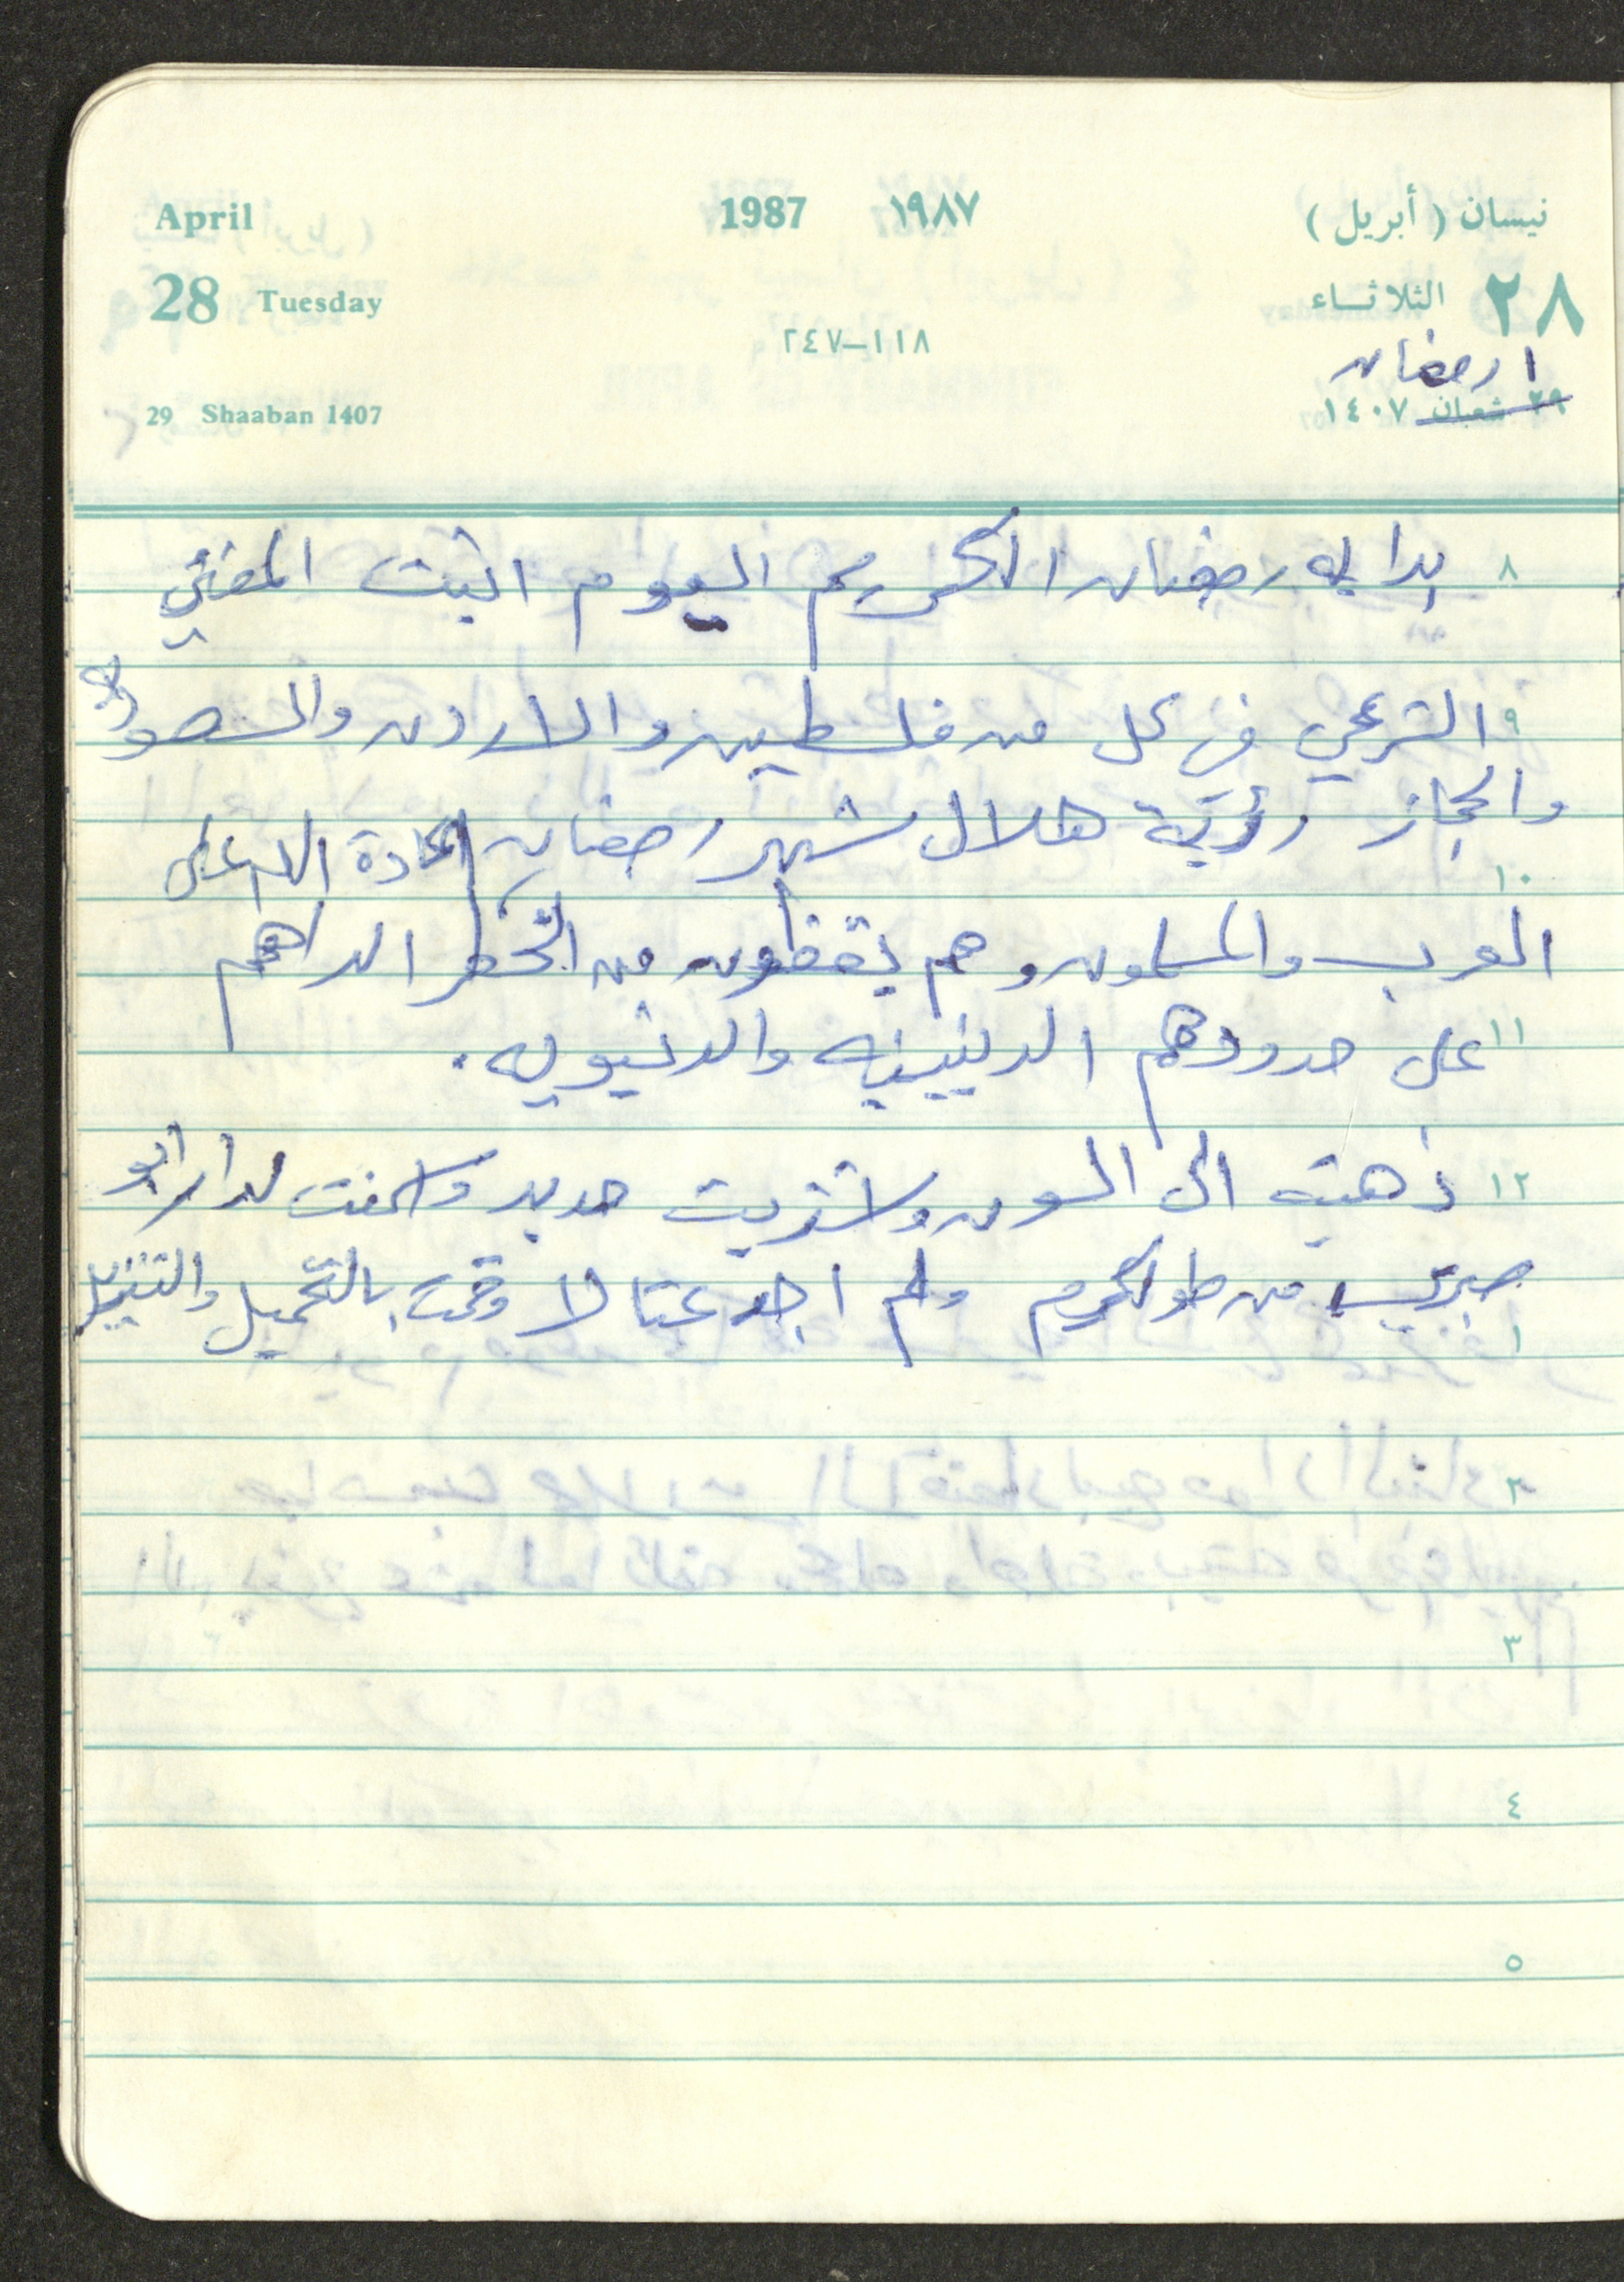 April 1987 ١٩٨٧ نيسان (أبريل)
28 Tuesday الثلاثاء ٢٨
٢٤٧-١١٨
١ رمضان
29 Shaaban 1407 ٢٩ شعبان ١٤٠٧
٨ بدايه رمضان الكريم اليوم اثبت المفتي
٩ الشرعي في كل من فلسطين والاردن والسعوديه
والحجاز رؤية هلال شهر رمضان اعاده الله على
١٠
العرب والمسلمون وهم يقظون من الخطر الداهم
١١ على حدودهم الدينيه والدنيويه .
١٢ ذهبت الى السوق واشتريت حديد واسمنت لدار ابو
صبري من طولكرم ولم اجد عتالا وقمت بالتحميل والتنزيل
١
٢
٣
٤
٥